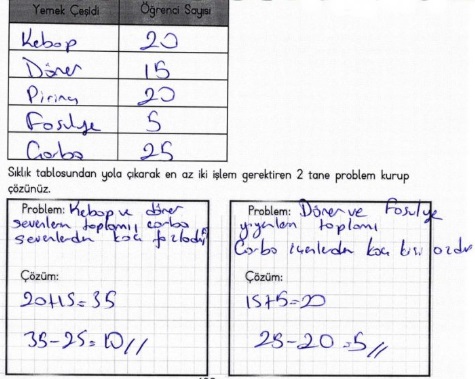 Yemek Çeşidi Öğrenci Sayısı
Kebap 20
Döner 15
Pirinç 20
Fosulye 5
Çorba 25
Sıklık tablosundan yola çıkarak en az iki işlem gerektiren 2 tane problem kurup
çözünüz.
Problem: Kebap ve döner
sevenlerin toplamı çorba
sevenlerden kaç fazladır
Çözüm:
20+15=35
35-25=10//
Problem: Döner ve Fosulye
yiyenlerin toplamı
Çorba içenlerden kaç kişi azdır
Çözüm:
15+5=20
25-20=5//